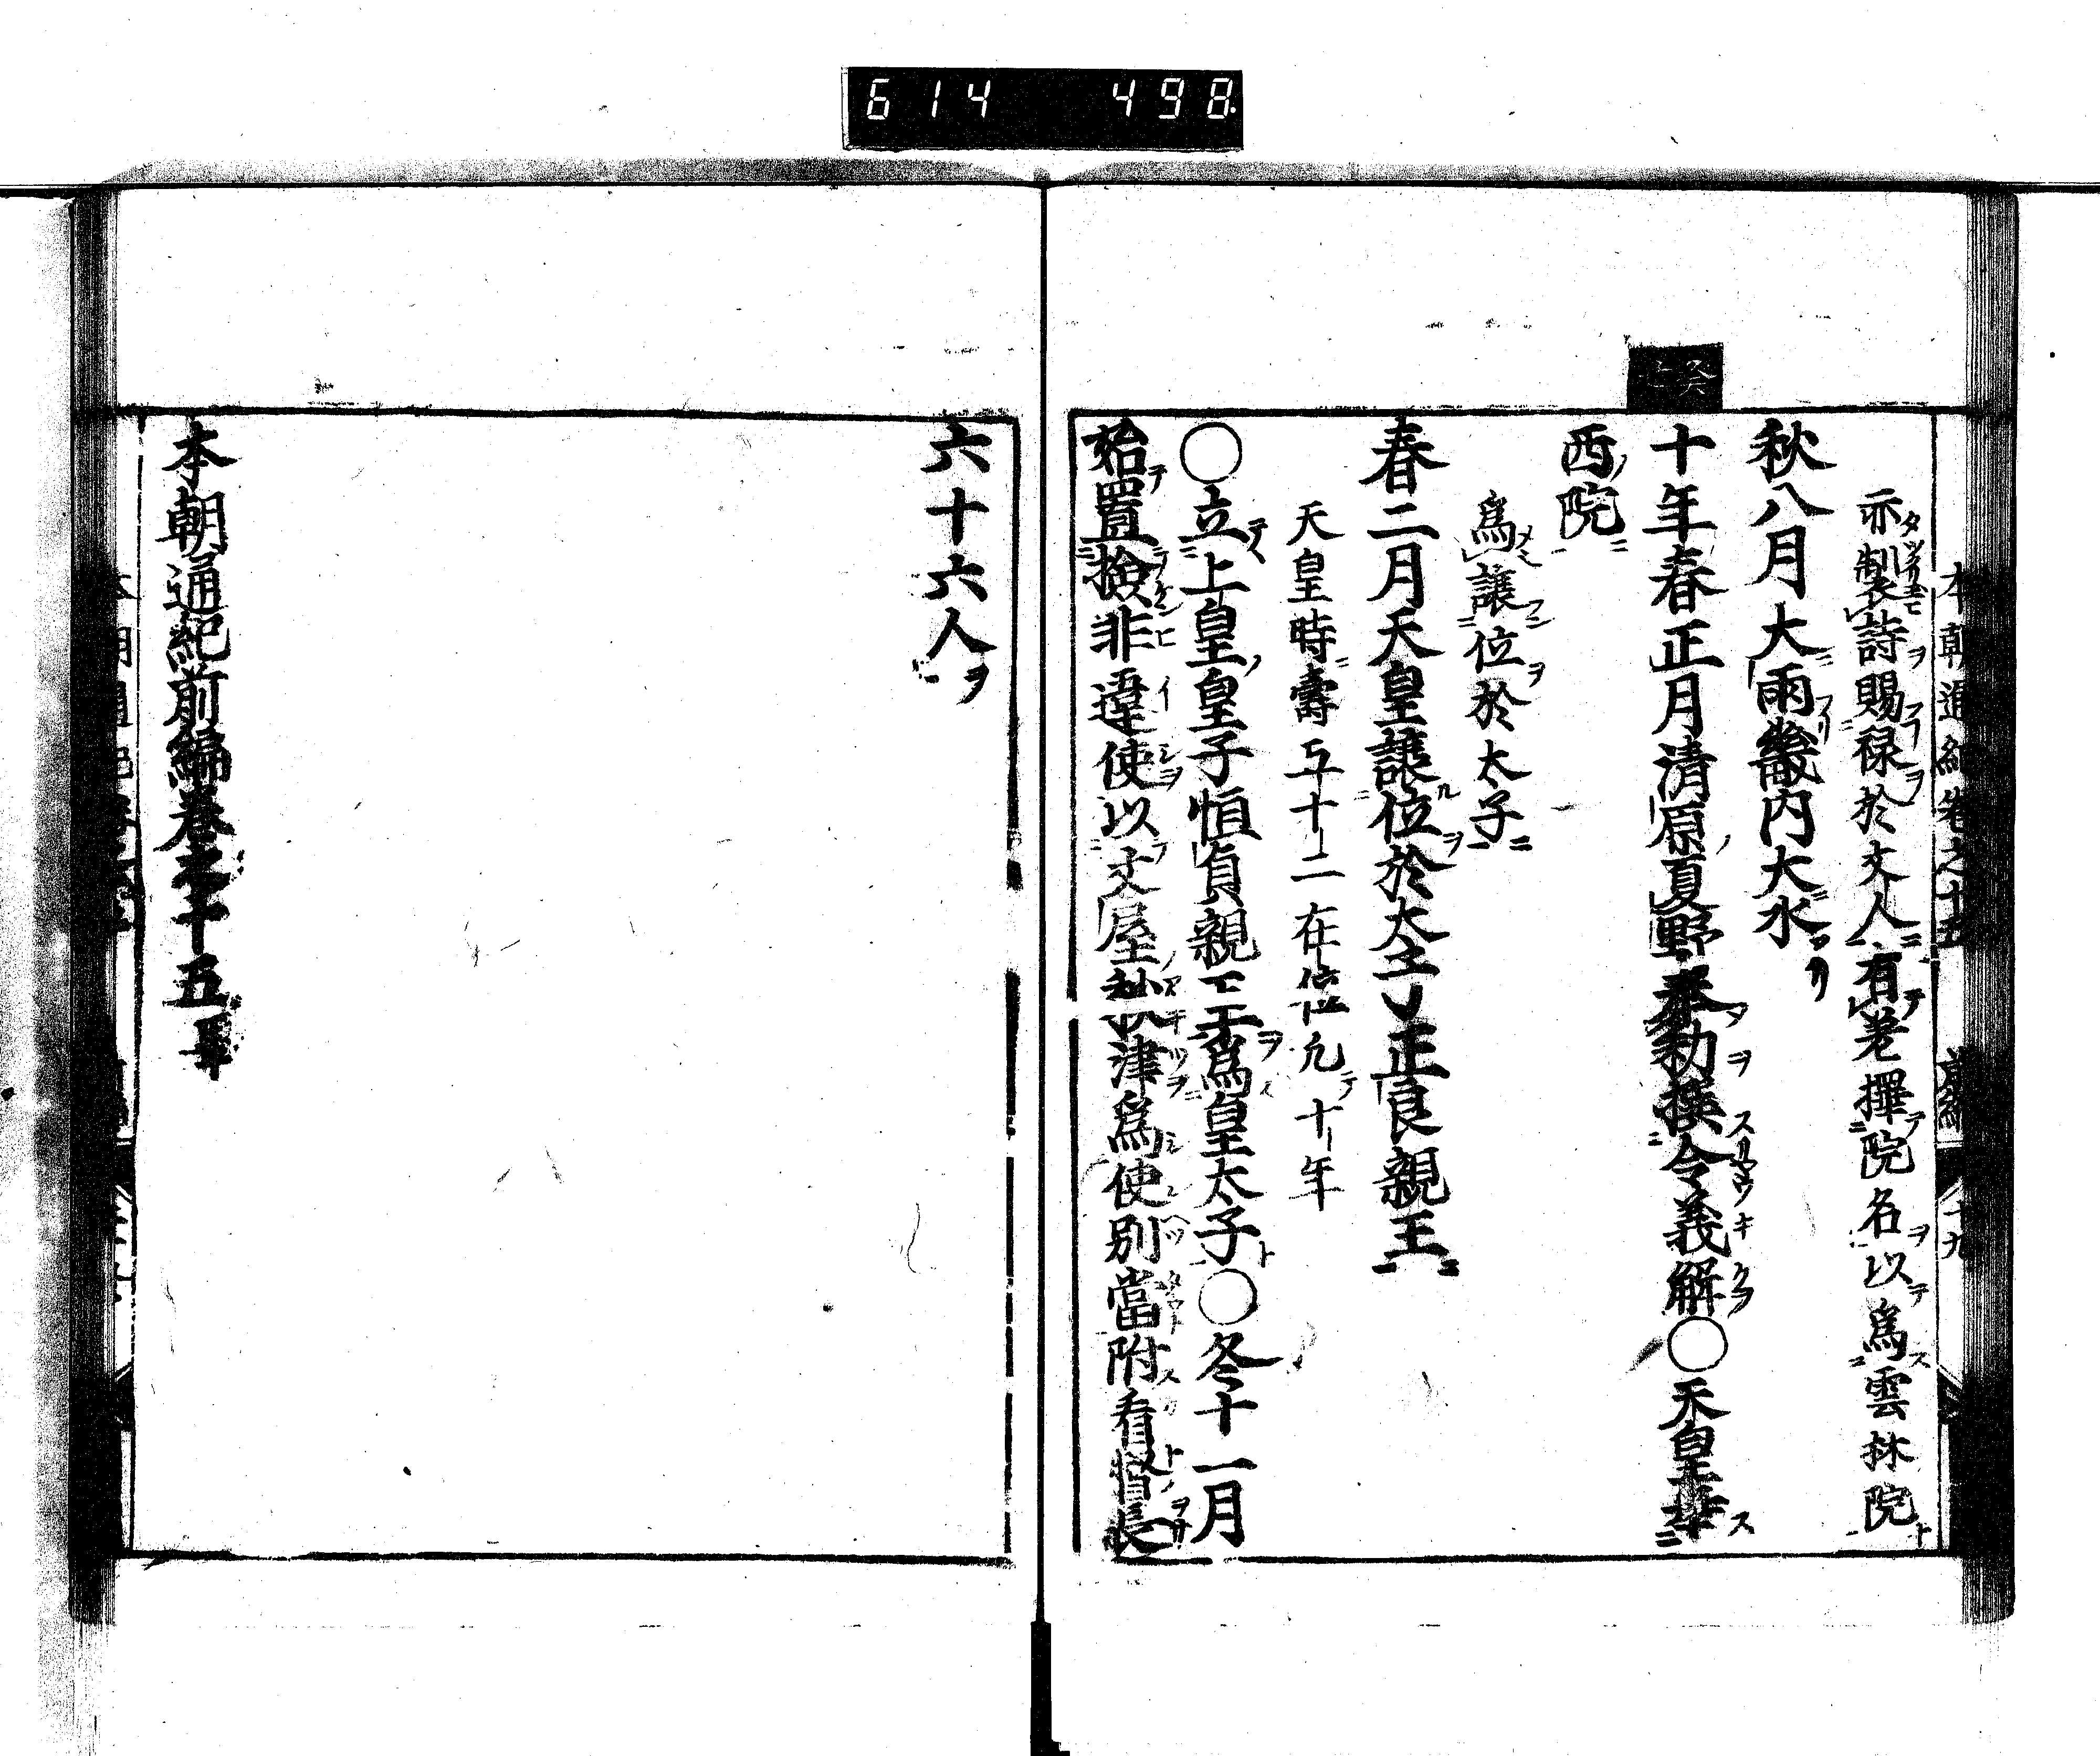 614 498
本朝通紀卷之十五 前編 二十九
示製詩賜禄於文人有老擇院名以爲雲林院
秋八月大雨畿内大水
十年春正月清原夏野奉勅撰令義解○天皇幸
西院
爲讓位於太子
春二月天皇讓位於太子正良親王
天皇時壽五十二在位凡十年
○立上皇皇子恒貞親王爲皇太子○冬十一月
始置撿非違使以文屋秋津爲使別當附看督長
六十六人ヲ
本朝通紀前編卷之十五畢